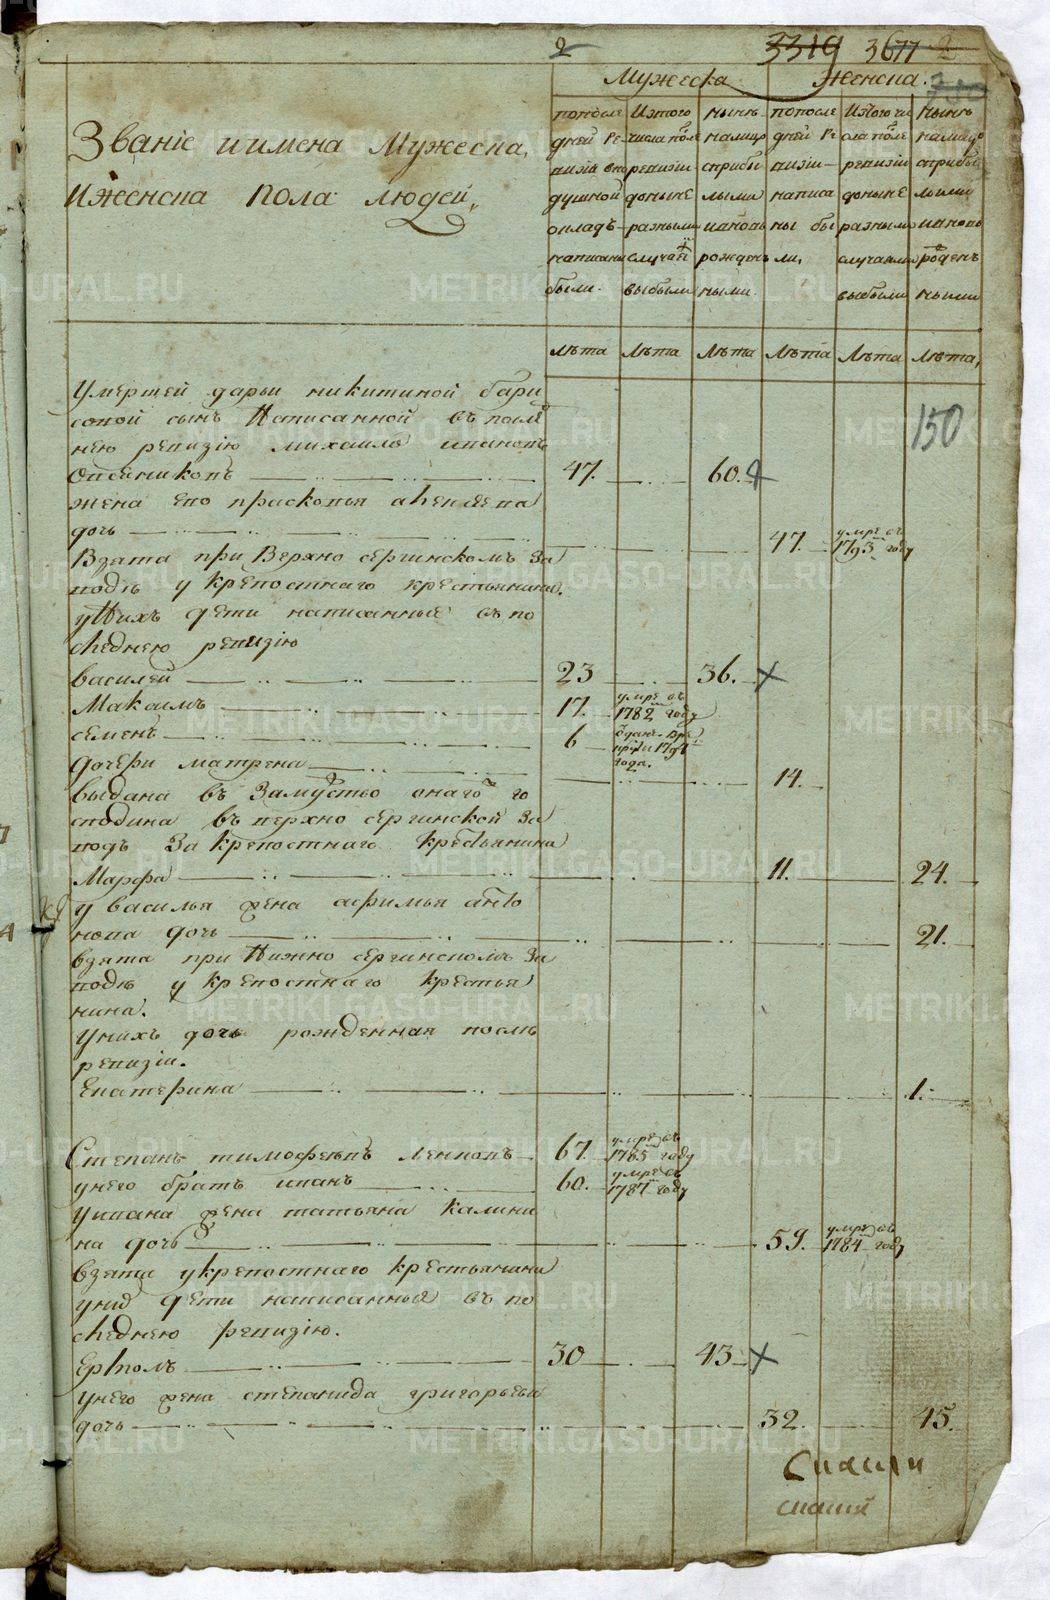 2 3319 3677 2
Мужеска Женска.
Званiе иимена Мужеска,
Иженска пола людей,
попосле
дней Ре
визiи впо
душной
окладъ
написаны
были.
Изтого
числа после
ревизiи
доныне
разными
случаи
выбыли
нынѣ
налицо
сприбы
лыми
ивновь
рожден
ными.
попосле
дней Ре
визiи
написа
ны бы
ли,
Изтого чи
сла после
ревизiи
доныне
разными
случаями
выбыли
нынѣ
налицо
сприбы
лыми
ивновь
рожден
ными
Лѣта Лѣта Лѣта Лѣта Лѣта Лѣта,
150
умершей дарьи никитиной бори
совой сынъ Написанной въ послѣ
нею ревизiю михаило ивановъ
Овсяниковъ 47. 60.
жена ево прасковья
дочь 47. умре въ 1795 году
Взята при Верхно сергинскомъ за
водѣ у крепостнаго крестьянина.
уНихъ дети написанные въ по
следнею ревизiю
василей 23 36.
Максимъ 17. умре въ 1782 году
семенъ 6 отданъ в рекруты
года.
дочери матрена 14.
выдана въ Замужство онаго го
сподина въ верхно сергинской за
водъ За крепостнаго крестьянина
Марфа 11. 24.
у василья жена афимья анто
нова дочь 21.
взята при Нижно сергинскомъ За
водѣ у крепостнаго крестья
нина.
уних дочь рожденная послѣ
ревизiи.
Екатерина 1.
Степанъ тимофеевъ 67. умре въ 1785 году
унего братъ иванъ 60. умре въ 1787 году
уивана жена татьяна калини
на дочь 59. умре въ 1784 году
взята укрепостнаго крестьянина
уних дети написанныя въ по
следнею ревизiю.
Ермолъ 30 43.
унего жена степанида григорьева
дочь 32. 45.
METRIKI.GASO-URAL.RU